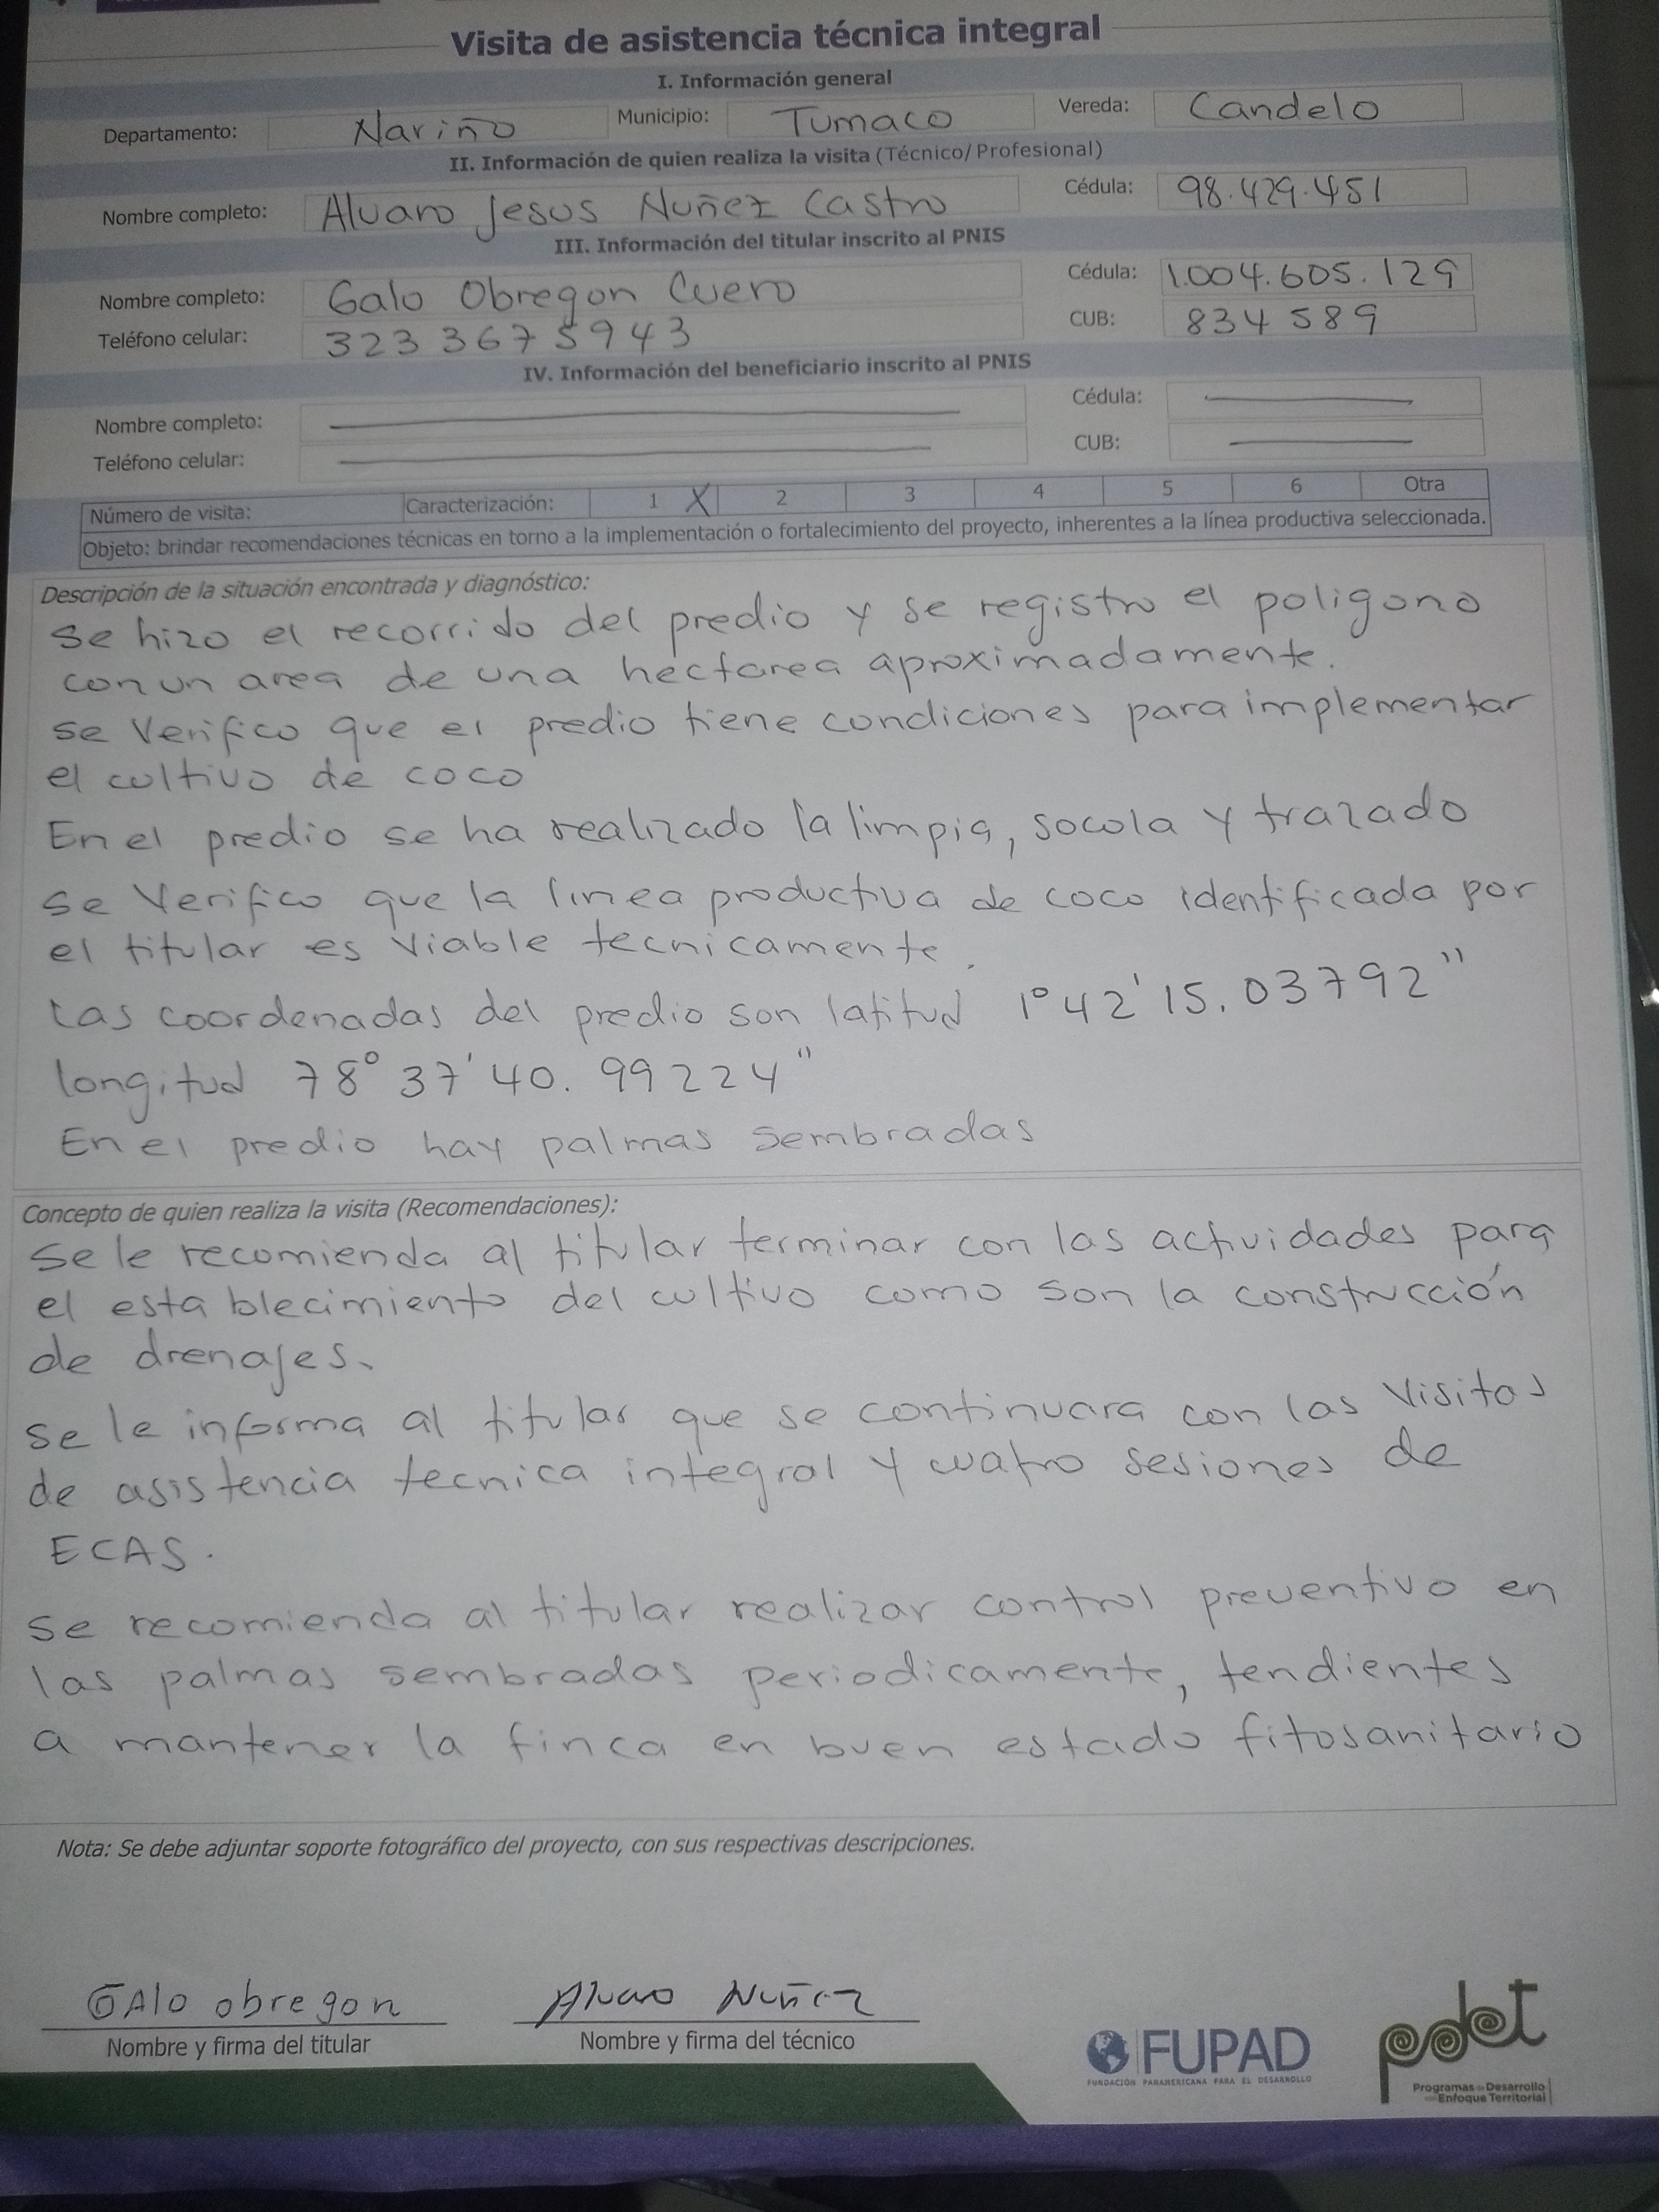 Visita de asistencia técnica integral
I. Información general
Departamento: Nariño Municipio: Tumaco Vereda: Candelo
II. Información de quien realiza la visita (Técnico/Profesional)
Nombre completo: Alvaro Jesus Nuñez Castro Cédula: 98.429.451
III. Información del titular inscrito al PNIS
Nombre completo: Galo Obregon Cuero Cédula: 1.004.605.129
Teléfono celular: 323 3675943 CUB: 834589
IV. Información del beneficiario inscrito al PNIS
Nombre completo: Cédula:
Teléfono celular: CUB:
Número de visita: Caracterización: 1 X 2 3 4 5 6 Otra
Objeto: brindar recomendaciones técnicas en torno a la implementación o fortalecimiento del proyecto, inherentes a la línea productiva seleccionada.
Descripción de la situación encontrada y diagnóstico:
Se hizo el recorrido del predio y se registro el poligono
con un area de una hectarea aproximadamente.
se Verifico que el predio tiene condiciones para implementar
el cultivo de coco
En el predio se ha realizado la limpia, socola y trazado
se Verifico que la linea productiva de coco identificada por
el titular es viable tecnicamente.
Las coordenadas del predio son latitud 1°42'15.03792"
longitud 78°37'40.99224"
En el predio hay palmas sembradas
Concepto de quien realiza la visita (Recomendaciones):
Se le recomienda al titular terminar con las actividades para
el establecimiento del cultivo como son la construcción
de drenajes.
se le informa al titular que se continuara con las Visitas
de asistencia tecnica integral y cuatro sesiones de
ECAS.
se recomienda al titular realizar control preventivo en
las palmas sembradas periodicamente, tendientes
a mantener la finca en buen estado fitosanitario
Nota: Se debe adjuntar soporte fotográfico del proyecto, con sus respectivas descripciones.
GAlo obregon Alvaro Nuñez
Nombre y firma del titular Nombre y firma del técnico
FUPAD
FUNDACIÓN PANAMERICANA PARA EL DESARROLLO
pdet
Programas de Desarrollo
con Enfoque Territorial